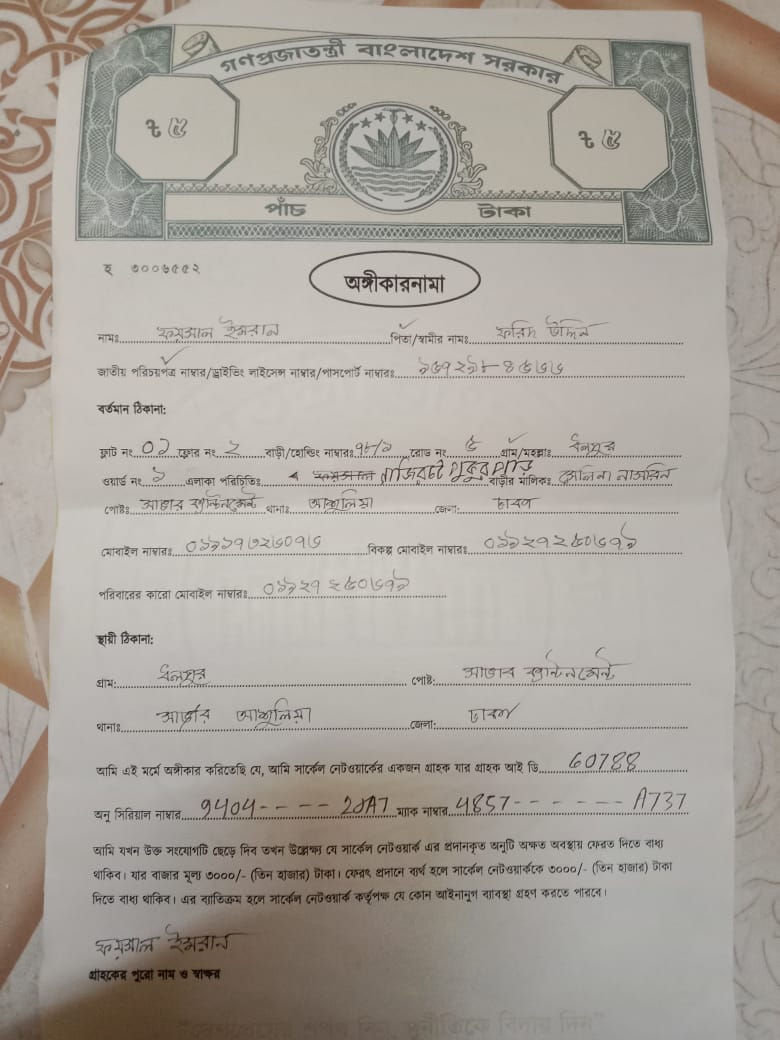 গণপ্রজাতন্ত্রী বাংলাদেশ সরকার
৳ ৫
৳ ৫
পাঁচ টাকা
হ ৩০০৬৫৫২
অঙ্গীকারনামা
নামঃ ফয়সাল ইমরান পিতা/স্বামীর নামঃ ফরিদ উদ্দিন
জাতীয় পরিচয়পত্র নাম্বার/ড্রাইভিং লাইসেন্স নাম্বার/পাসপোর্ট নাম্বারঃ
বর্তমান ঠিকানা:
ফ্লাট নং ০১ ফ্লোর নং ২ বাড়ী/হোল্ডিং নাম্বারঃ রোড নং ৫ গ্রাম/মহল্লাঃ ধলপুর
ওয়ার্ড নং ১ এলাকা পরিচিতিঃ পুকুরপাড় বাড়ীর মালিকঃ সেলিনা নাসরিন
পোষ্টঃ সাভার ক্যান্টনমেন্ট থানাঃ আশুলিয়া জেলা: ঢাকা
মোবাইল নাম্বারঃ বিকল্প মোবাইল নাম্বারঃ
পরিবারের কারো মোবাইল নাম্বারঃ
স্থায়ী ঠিকানা:
গ্রাম: ধলপুর পোষ্ট: সাভার ক্যান্টনমেন্ট
থানাঃ সাভার আশুলিয়া জেলা: ঢাকা
আমি এই মর্মে অঙ্গীকার করিতেছি যে, আমি সার্কেল নেটওয়ার্কের একজন গ্রাহক যার গ্রাহক আই ডি 60788
অনু সিরিয়াল নাম্বার 9404 - - - - 20A7 ম্যাক নাম্বার 4857 - - - - - - A737
আমি যখন উক্ত সংযোগটি ছেড়ে দিব তখন উল্লেখ্য যে সার্কেল নেটওয়ার্ক এর প্রদানকৃত অনুটি অক্ষত অবস্থায় ফেরত দিতে বাধ্য
থাকিব। যার বাজার মূল্য ৩০০০/- (তিন হাজার) টাকা। ফেরৎ প্রদানে ব্যর্থ হলে সার্কেল নেটওয়ার্ককে ৩০০০/- (তিন হাজার) টাকা
দিতে বাধ্য থাকিব। এর ব্যাতিক্রম হলে সার্কেল নেটওয়ার্ক কর্তৃপক্ষ যে কোন আইনানুগ ব্যাবস্থা গ্রহণ করতে পারবে।
ফয়সাল ইমরান
গ্রাহকের পুরো নাম ও স্বাক্ষর